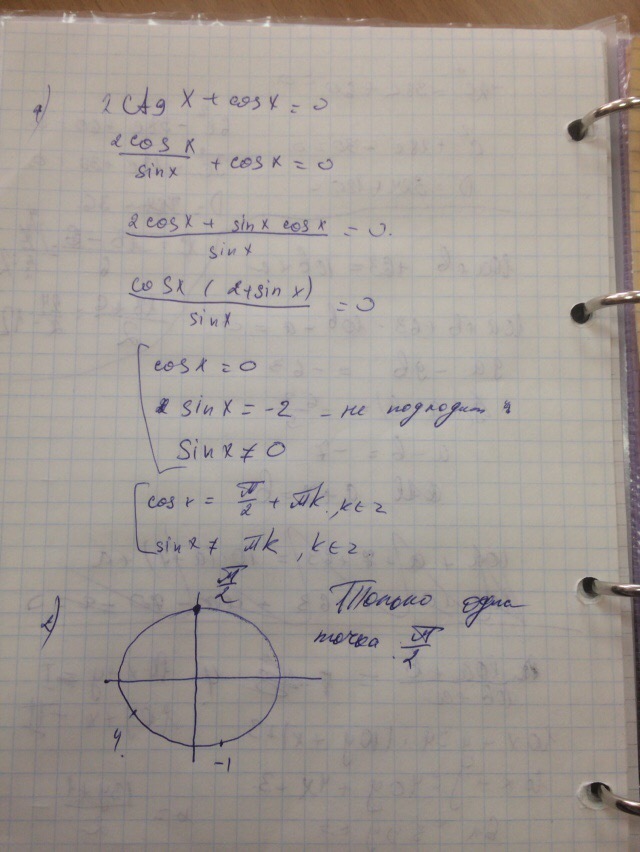 1) 2 ctg x + cos x = 0
2cos x / sin x + cos x = 0
2cos x + sin x cos x / sin x = 0.
cos x (2 + sin x) / sin x = 0
cos x = 0
sin x = -2 - не подходит
sin x ≠ 0
cos x = π/2 + πk, k ∈ z
sin x ≠ πk, k ∈ z
2) π/2
Только одна
точка π/2
4
-1